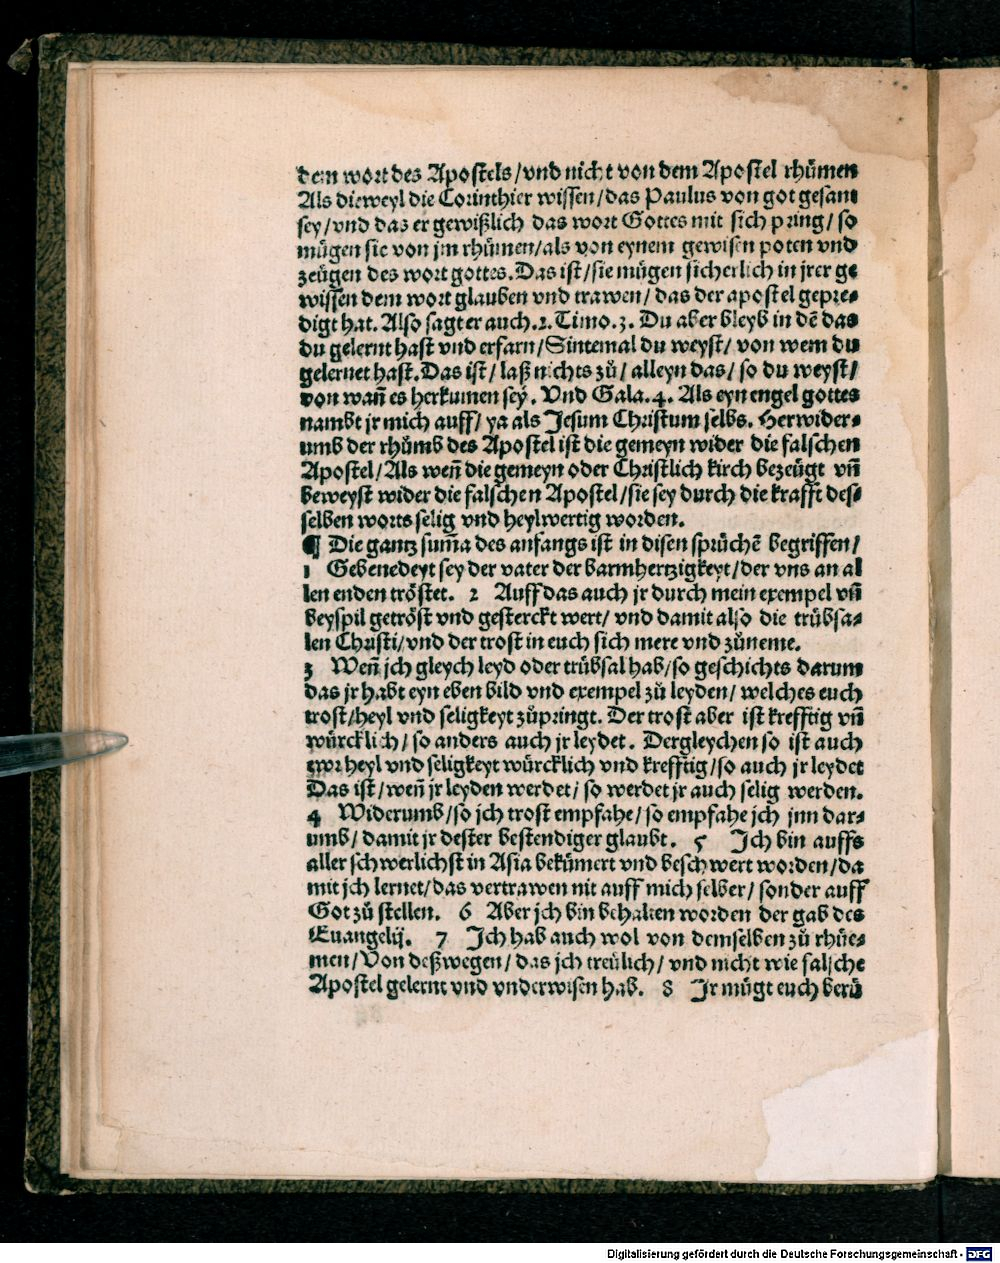 dem wort des Apostels/vnd nicht von dem Apostel rhümen
Als dieweyl die Corinthier wissen/das Paulus von got gesant
sey/vnd das er gewißlich das wort Gottes mit sich pring/so
mügen sie von jm rhümen/als von eynem gewisen poten vnd
zeügen des wort gottes. Das ist/sie mügen sicherlich in jrer ge
wissen dem wort glauben vnd trawen/das der apostel gepre⸗
digt hat. Also sagt er auch .2. Timo. 3. Du aber bleyb in dē das
du gelernt hast vnd erfarn/Sintemal du weyst/von wem du
gelernet hast. Das ist/laß nichts zů/alleyn das/so du weyst/
von wañ es herkumen sey. Vnd Gala. 4. Als eyn engel gottes
nambt jr mich auff/ya als Jesum Christum selbs. Herwider⸗
umb der rhůmb des Apostel ist die gemeyn wider die falschen
Apostel/Als weñ die gemeyn oder Christlich kirch bezeügt vñ
beweyst wider die falschen Apostel/sie sey durch die krafft des⸗
selben worts selig vnd heylwertig worden.
¶ Die gantz sum̄a des anfangs ist in disen sprüchē begriffen/
1 Gebenedeyt sey der vater der barmhertzigkeyt/der vns an al
len enden tröstet. 2 Auff das auch jr durch mein exempel vñ
beyspil getröst vnd gesterckt wert/vnd damit also die trübsa⸗
len Christi/vnd der trost in euch sich mere vnd zůneme.
3 Weñ jch gleych leyd oder trübsal hab/so geschichts darum
das jr habt eyn eben bild vnd exempel zů leyden/welches euch
trost/heyl vnd seligkeyt zůpringt. Der trost aber ist krefftig vñ
würcklich/so anders auch jr leydet. Dergleychen so ist auch
ewr heyl vnd seligkeyt würcklich vnd krefftig/so auch jr leydet
Das ist/weñ jr leyden werdet/so werdet jr auch selig werden.
4 Widerumb/so jch trost empfahe/so empfahe jch jnn dar⸗
umb/damit jr dester bestendiger glaubt. 5 Jch bin auffs
aller schwerlichst in Asia bekümert vnd beschwert worden/da
mit jch lernet/das vertrawen nit auff mich selber/sonder auff
Got zů stellen. 6 Aber jch bin behalten worden der gab des
Euangelij. 7 Jch hab auch wol von demselben zů rhüe⸗
men/Von deßwegen/das jch treülich/vnd nicht wie falsche
Apostel gelernt vnd vnderwisen hab. 8 Jr mügt euch berü
Digitalisierung gefördert durch die Deutsche Forschungsgemeinschaft - DFG